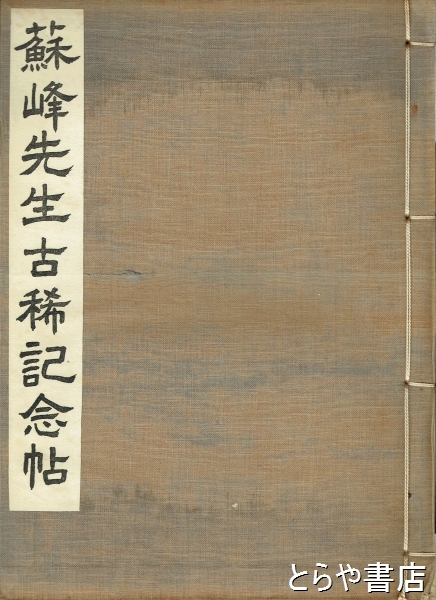 蘇峰先生古稀記念帖
とらや書店